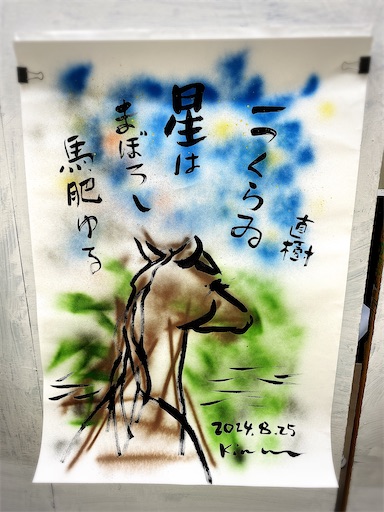 一つくらゐ
星は
まぼろし
馬肥ゆる
直樹
2024.8.25